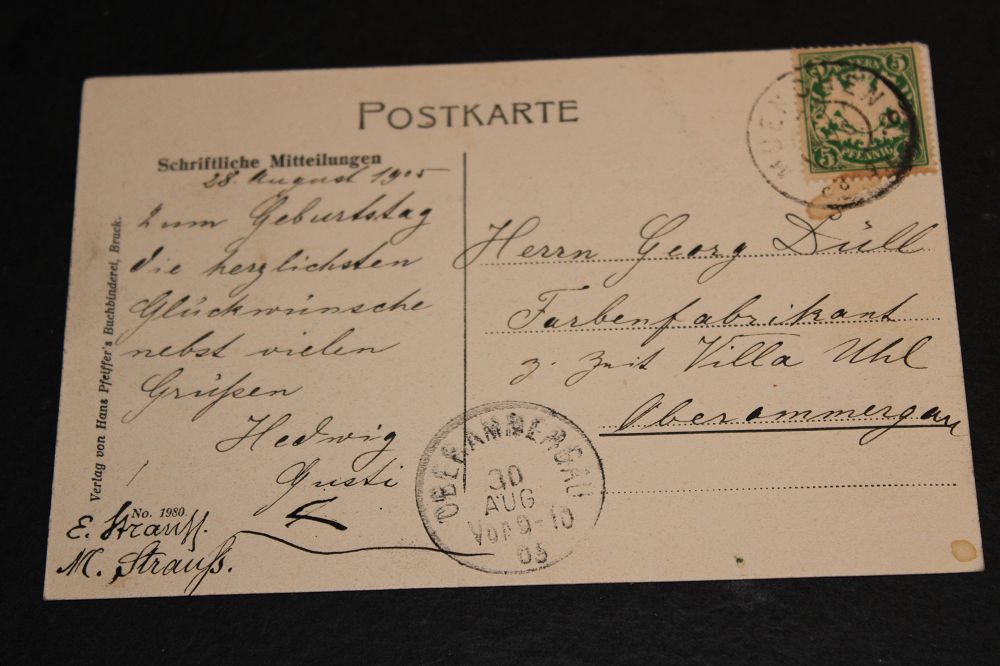 POSTKARTE
Schriftliche Mitteilungen
28. August 1905
Zum Geburtstag
die herzlichsten
Glückwünsche
nebst vielen
Grüßen
Hedwig
Gusti
E. Strauß.
M. Strauß.
No. 1980.
Verlag von Hans Pfeiffer's Buchbinderei, Bruck.
BAYERN
5
5
PFENNIG
MUENCHEN
Herrn Georg Düll
Farbenfabrikant
z. Zeit Villa Uhl
Oberammergau
OBERAMMERGAU
30
AUG
Vor 9-10
05